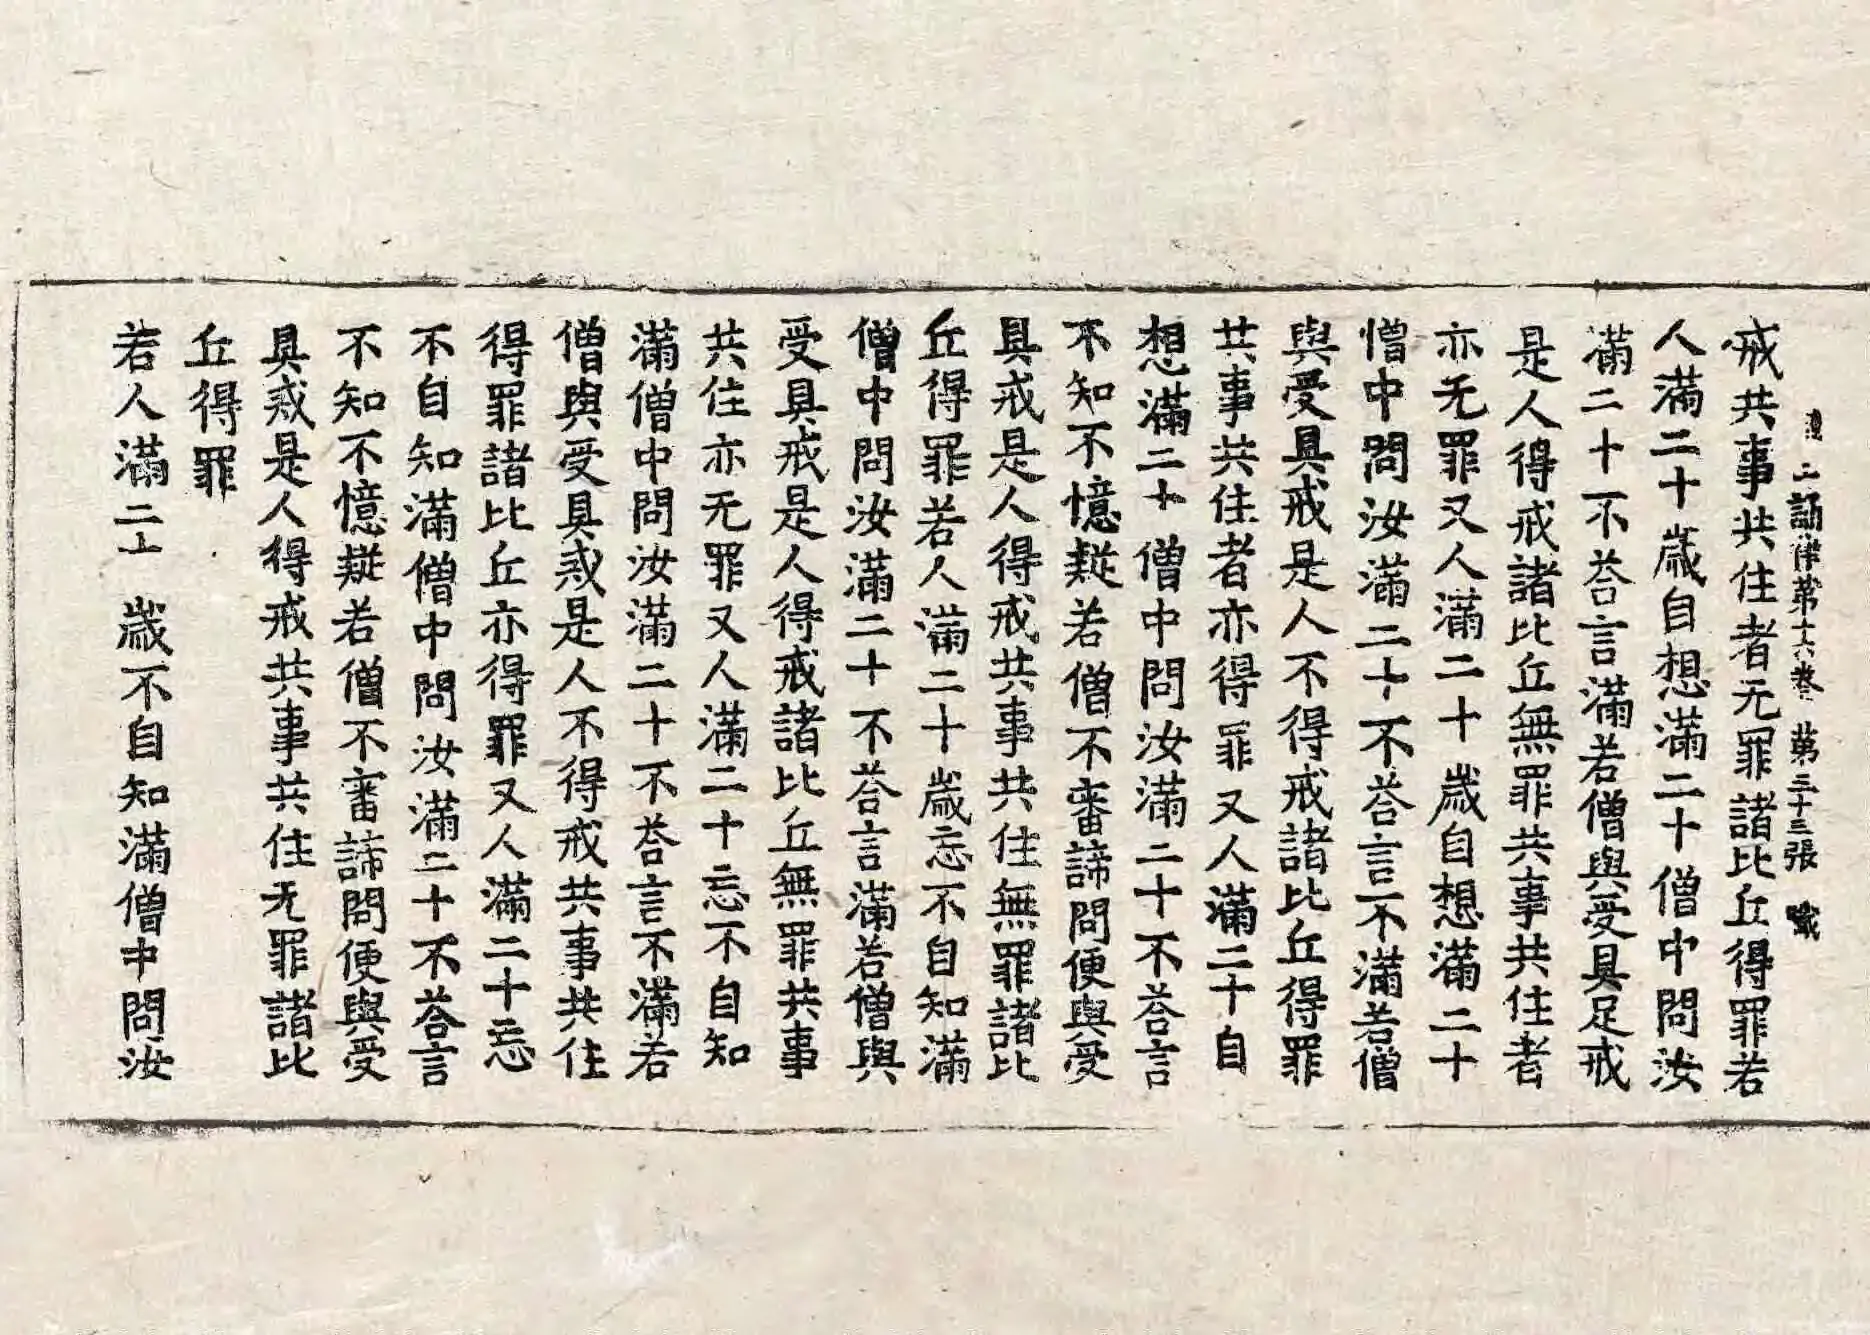 十誦律第十六卷 第三十三張
戒共事共住者无罪諸比丘得罪若
人滿二十歲自想滿二十僧中問汝
滿二十不荅言滿若僧與受具足戒
是人得戒諸比丘無罪共事共住者
亦无罪又人滿二十歲自想滿二十
僧中問汝滿二十不荅言不滿若僧
與受具戒是人不得戒諸比丘得罪
共事共住者亦得罪又人滿二十自
想滿二十僧中問汝滿二十不荅言
不知不憶疑若僧不審諦問便與受
具戒是人得戒共事共住無罪諸比
丘得罪若人滿二十歲忘不自知滿
僧中問汝滿二十不荅言滿若僧與
受具戒是人得戒諸比丘無罪共事
共住亦无罪又人滿二十忘不自知
滿僧中問汝滿二十不荅言不滿若
僧與受具戒是人不得戒共事共住
得罪諸比丘亦得罪又人滿二十忘
不自知滿僧中問汝滿二十不荅言
不知不憶疑若僧不審諦問便與受
具戒是人得戒共事共住无罪諸比
丘得罪
若人滿二十歲不自知滿僧中問汝